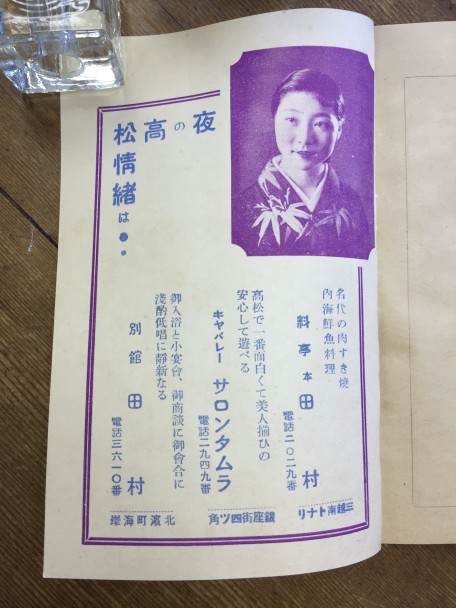 夜の高
松情緒は・・
名代の肉すき焼
内海鮮魚料理
料亭 本田村
電話二〇二九番
三越南トナリ
高松で一番面白くて美人揃ひの
安心して遊べる
キャバレー サロンタムラ
電話二九四九番
銀座街四ツ角
御入浴と小宴會、御商談に御會合に
淺酌低唱に靜新なる
別館 田村
電話三六一〇番
北濱町海岸